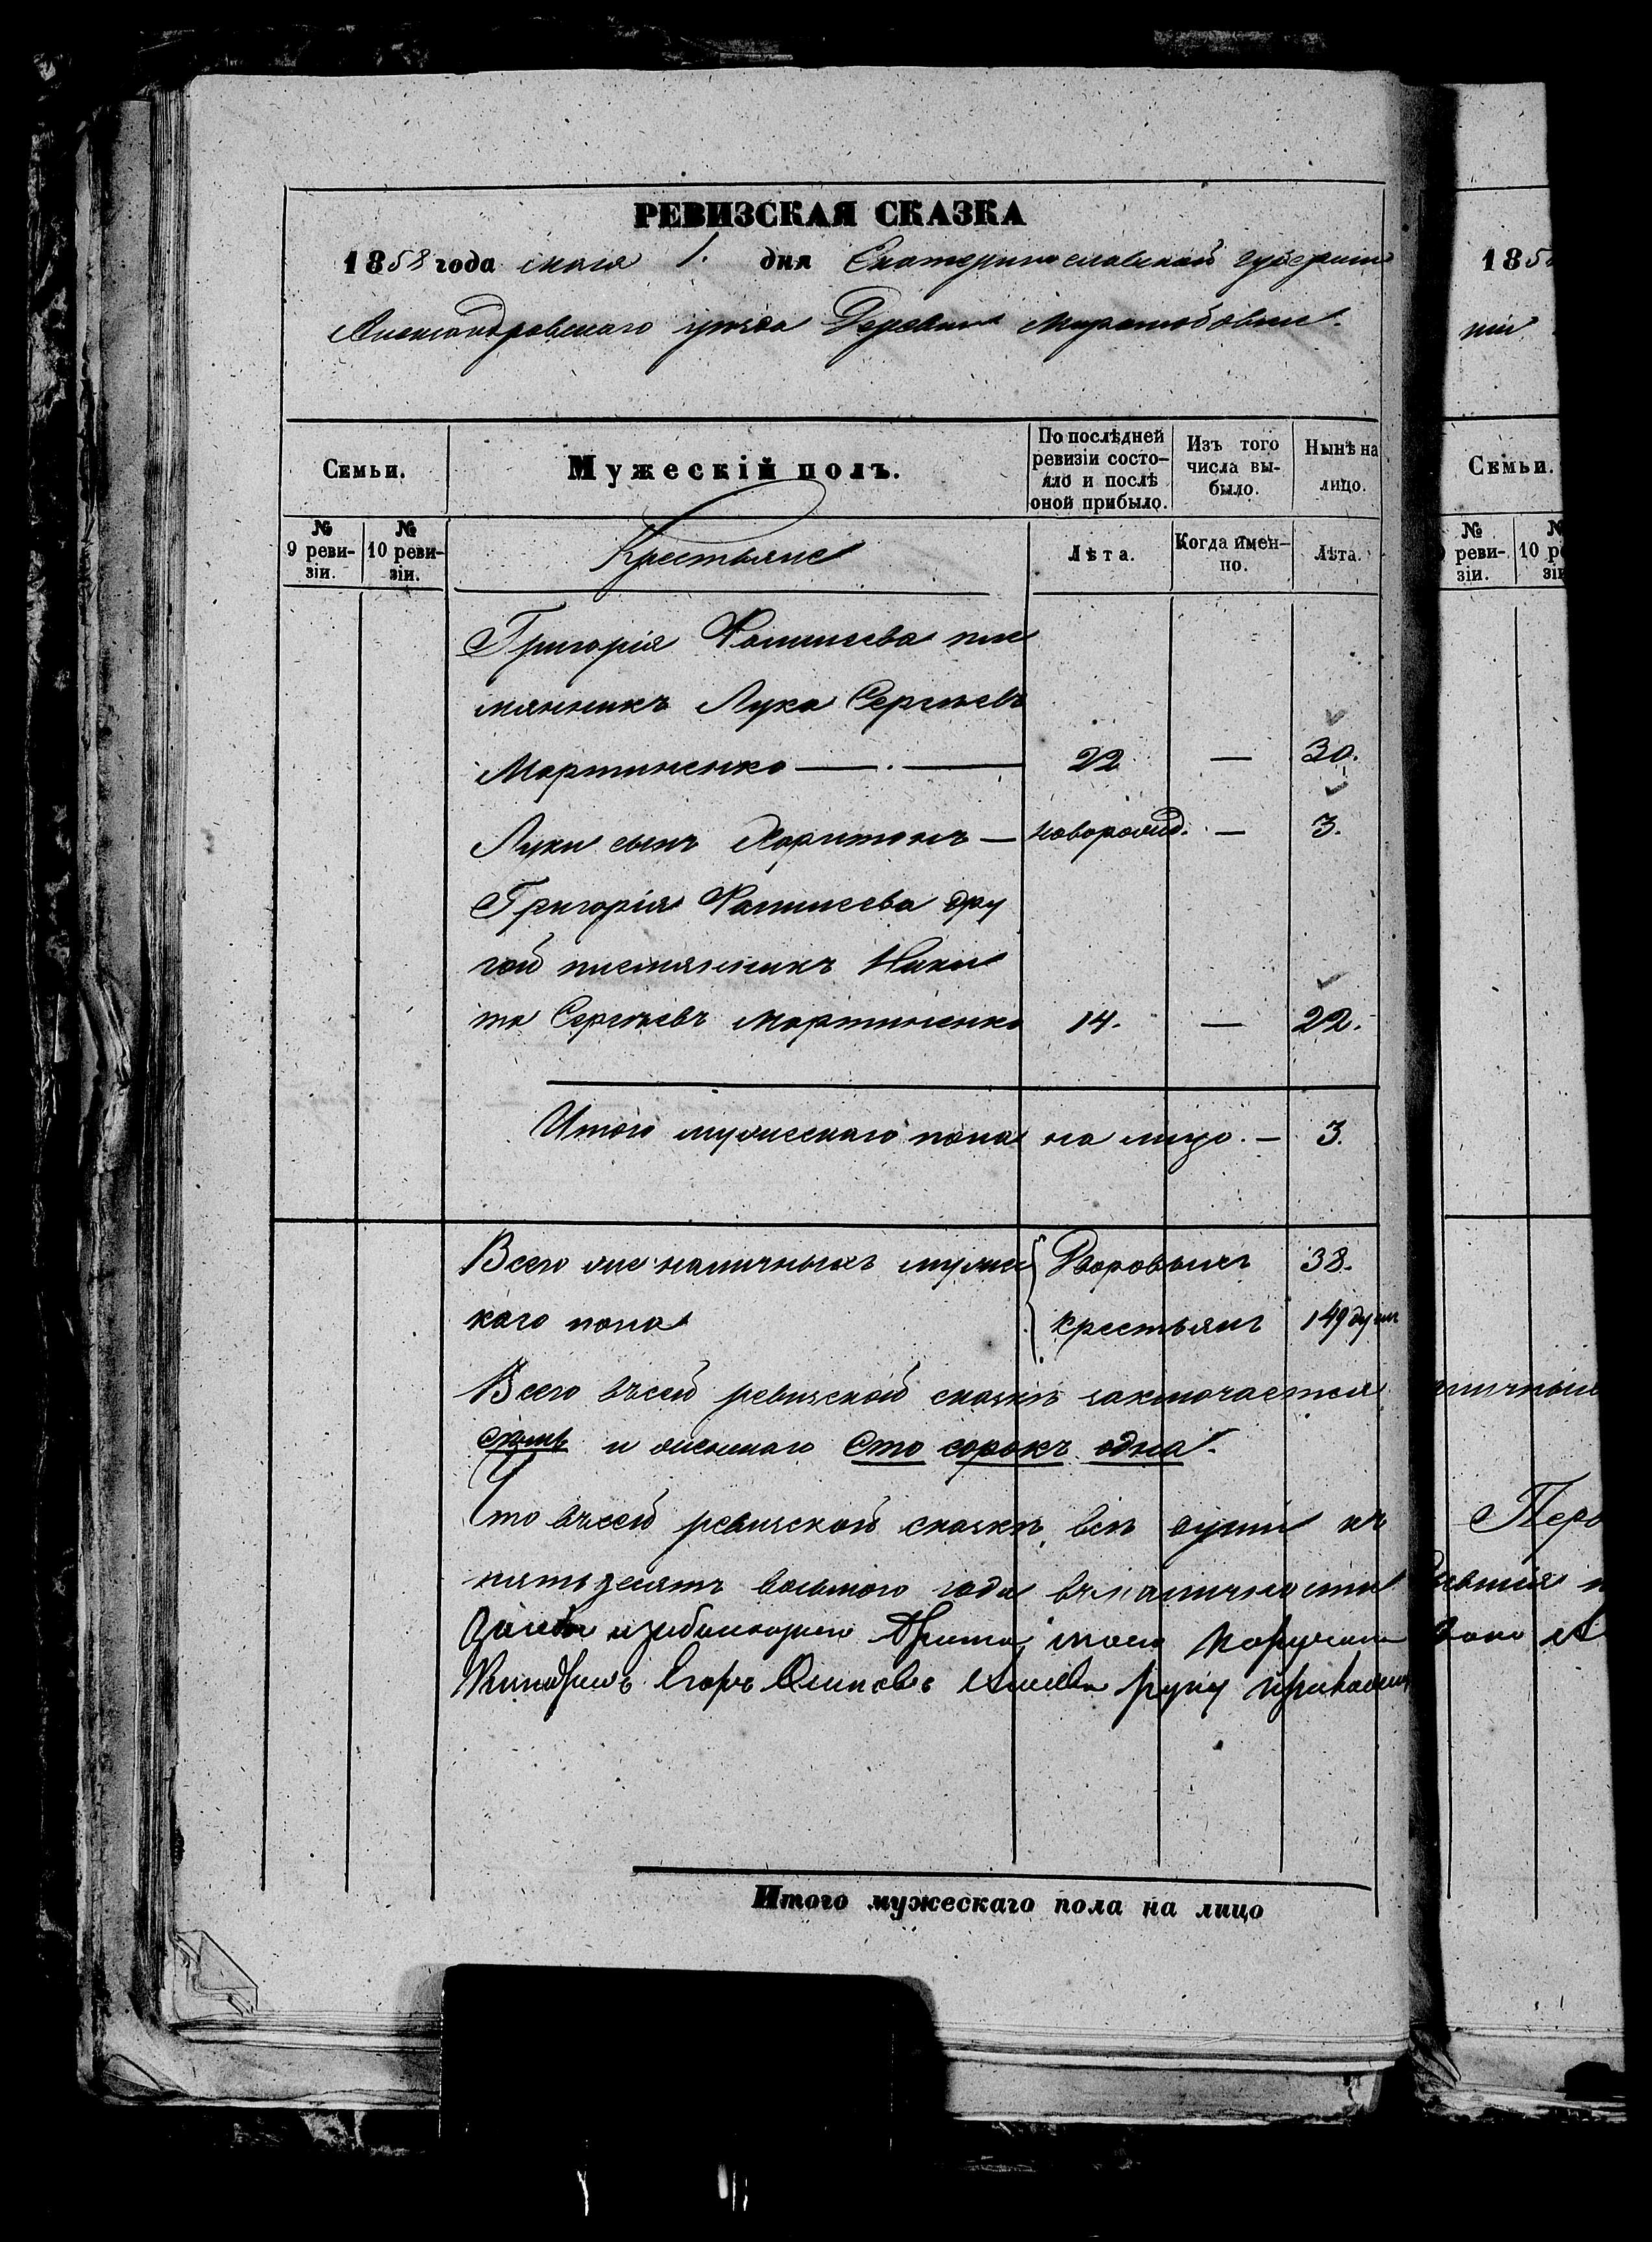 РЕВИЗСКАЯ СКАЗКА
1858 года мая 1. дня Екатеринославской губернии
Александровскаго уѣзда Деревни Миролюбовки.
Семьи.
Мужескій полъ.
По послѣдней ревизіи состо-
яло и послѣ оной прибыло.
Изъ того числа вы-
было.
Нынѣ на лицо.
№ 9 реви-
зіи.
№ 10 реви-
зіи.
Крестьяне
Лѣта.
Когда имен-
но.
Лѣта.
Григорія Фомичева пле
мянникъ Лука Сергѣевъ
Мартиненко — . — 22 — 30.
Луки сынъ Харитонъ — новорожд. — 3.
Григорія Фомичева дру
гой племянникъ Ники
та Сергѣевъ Мартиненко 14. — 22.
Итого мужескаго пола на лицо. — 3.
Всего же наличныхъ мужес Дворовыхъ 38.
каго пола крестьянъ 149 душъ
Всего въсей ревизской сказкѣ заключается
и женскаго Сто сорокъ одна.
Что въсей ревизской сказкѣ всѣ души къ
пятьдесятъ восьмого года въ наличности
Егоръ Осиповъ руку приложилъ
185
Семьи.
№
реви-
зіи.
№
10 ре
зі
Итого мужескаго пола на лицо